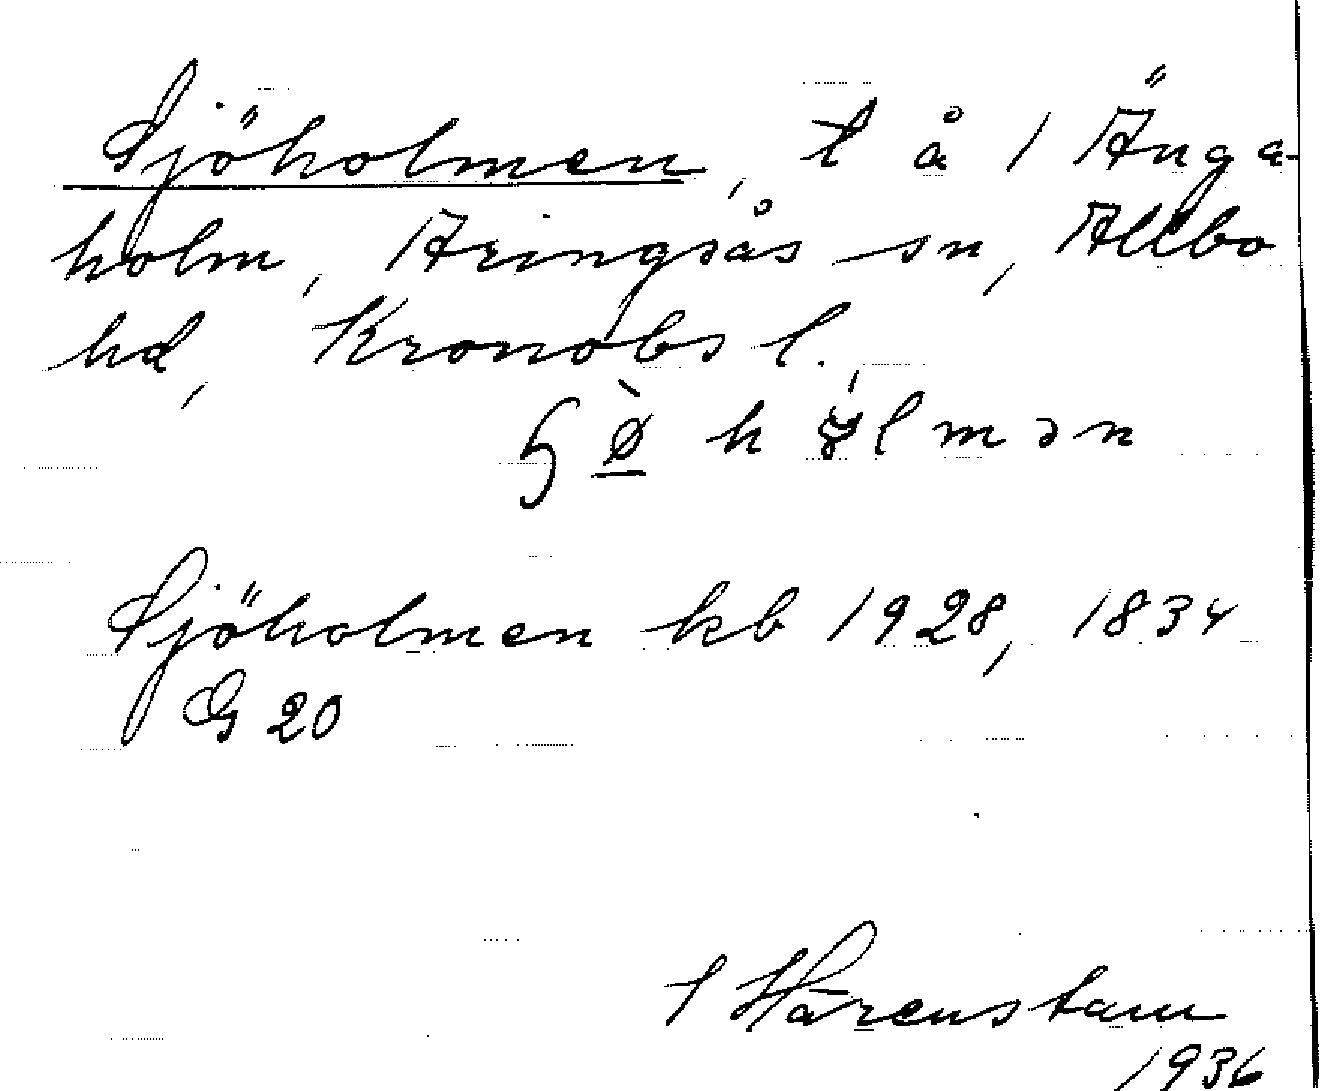 Sjöholmen, t å 1 Änga-
holm, Aringsås sn, Allbo
hd, Kronobs l.,
Sjöholmen kb 1928, 1834
G 20
Härenstam
1936